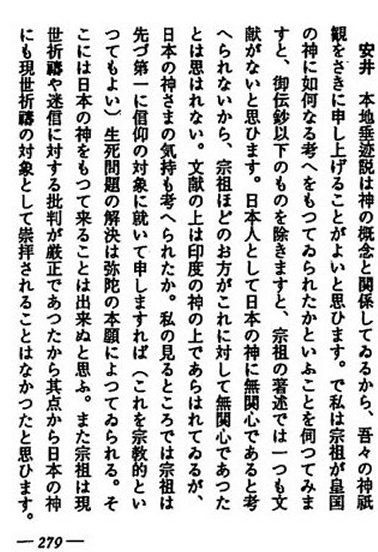 安井　本地垂迹説は神の概念と関係してゐるから、吾々の神祇
観をさきに申し上げることがよいと思ひます。で私は宗祖が皇国
の神に如何なる考へをもつてゐられたかといふことを伺つてみま
すと、御伝鈔以下のものを除きますと、宗祖の著述では一つも文
献がないと思ひます。日本人として日本の神に無関心であると考
へられないから、宗祖ほどのお方がこれに対して無関心であつた
とは思はれない。文献の上は印度の神の上であらはれてゐるが、
日本の神さまの気持も考へられたか。私の見るところでは宗祖は
先づ第一に信仰の対象に就いて申しますれば（これを宗教的とい
つてもよい）生死問題の解決は弥陀の本願によつてゐられる。そ
こには日本の神をもつて来ることは出来ぬと思ふ。また宗祖は現
世祈禱や迷信に対する批判が厳正であつたから其点から日本の神
にも現世祈禱の対象として崇拝されることはなかつたと思ひます。
— 279 —